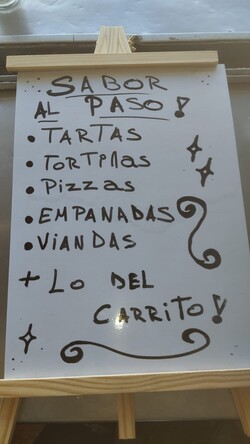 SABOR
AL PASO!
• TARTAS
• TORTILLAS
• PIZZAS
• EMPANADAS
• VIANDAS
+ LO DEL
CARRITO!